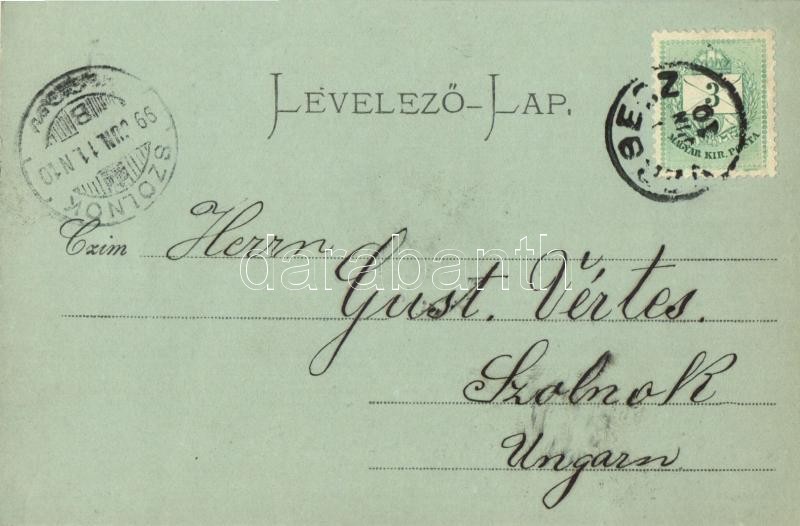 LEVELEZŐ-LAP.
3
MAGYAR KIR. POSTA
SZOLNOK
99 JUN. 11. N 10
B
Czim Herrn
Gust. Vértes.
Szolnok
Ungarn
darabanth